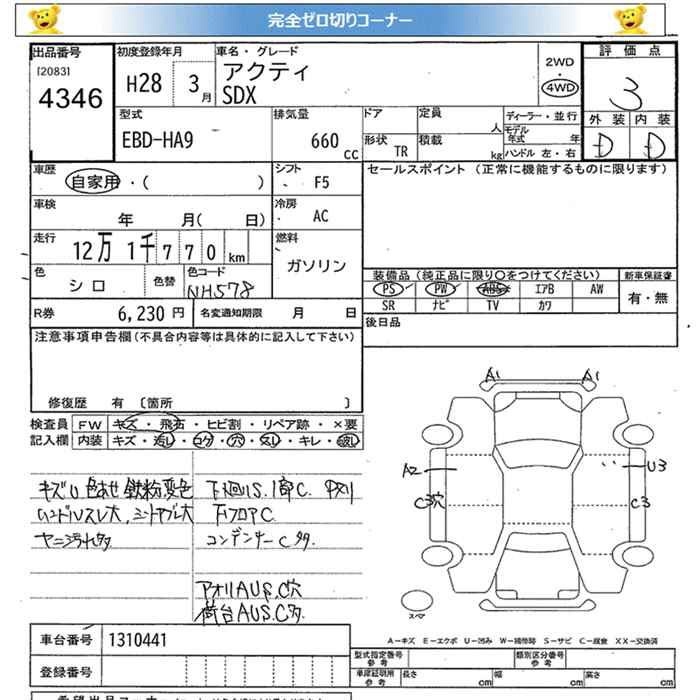 完全ゼロ切りコーナー
出品番号
[2083]
4346
初度登録年月
H28 3月
車名・グレード
アクティ
SDX
2WD
・
4WD
評価点
3
外装 内装
D D
型式
EBD-HA9
排気量
660 cc
ドア
定員
人
形状
TR
積載
kg
ディーラー・並行
モデル年式 年
ハンドル 左・右
車歴
自家用・( )
シフト
F5
車検
年 月( 日)
冷房
AC
走行
12万 1千 7 7 0 km
燃料
ガソリン
色
シロ
色替
色コード
NH578
R券
6,230 円
名変通知期限 月 日
セールスポイント (正常に機能するものに限ります)
装備品 (純正品に限り○をつけてください)
新車保証書
PS PW ABS エアB AW
SR ナビ TV カワ
有・無
後日品
注意事項申告欄(不具合内容等は具体的に記入して下さい)
修復歴 有 〔箇所 〕
検査員
記入欄
FW キズ・飛石・ヒビ割・リペア跡・×要
内装 キズ・汚し・コゲ・穴・スレ・キレ・破レ
キズU 色あせ 鉄粉 変色
ハンドルスレ大,
ヤニ汚れ多
下廻りS.1部C.
下フロアC
コンデンサーC多.
アオリAUS,C穴
荷台AUS.C多
A1 A1
A2 U3
C3穴 C3
スペア
A－キズ E－エクボ U－凹み W－補修跡 S－サビ C－腐食 XX－交換済
車台番号 1310441
登録番号
型式指定番号
参考
類別区分番号
参考
車庫証明用
参考
長さ cm 幅 cm 高さ cm